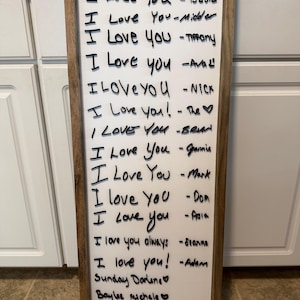 I Love You
I Love You
I Love You -Tiffany
I Love you
I LOVE YOU -NICK
I Love you! - The ♥
I LOVE YOU -BRIAN
I Love You -Gannie
I Love You -Mark
I love YOU - Don
I Love you - Asia
I love you always -Deanna
I love you! - Adam
Sunday Darlene♥
Baylee Nichole♥